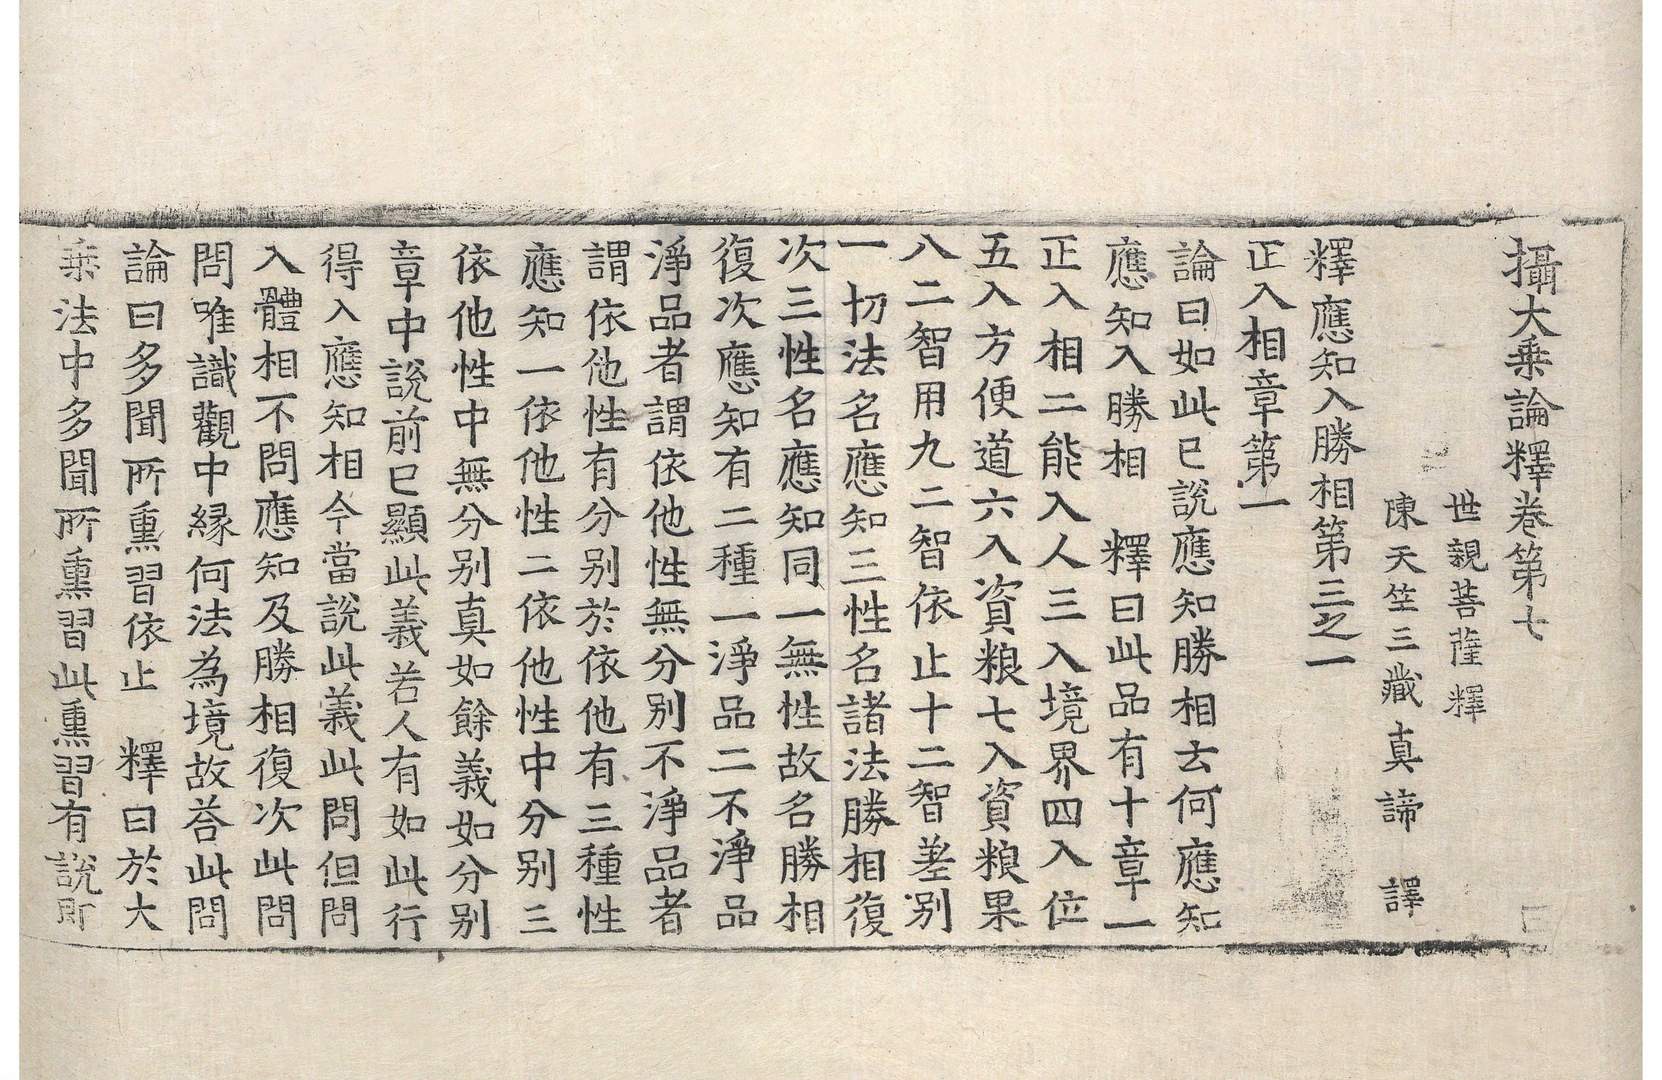 攝大乗論釋卷第七
世親菩薩釋
陳天竺三藏真諦譯
釋應知入勝相第三之一
正入相章第一
論曰如此已說應知勝相去何應知
應知入勝相　釋曰此品有十章一
正入相二能入人三入境界四入位
五入方便道六入資粮七入資粮果
八二智用九二智依止十二智差別
一切法名應知三性名諸法勝相復
次三性名應知同一無性故名勝相
復次應知有二種一淨品二不淨品
淨品者謂依他性無分別不淨品者
謂依他性有分別於依他有三種性
應知一依他性二依他性中分別三
依他性中無分別真如餘義如分別
章中說前已顯此義若人有如此行
得入應知相今當說此義此問但問
入體相不問應知及勝相復次此問
問唯識觀中縁何法為境故荅此問
論曰多聞所熏習依止　釋曰於大
乗法中多聞所熏習此熏習有說所